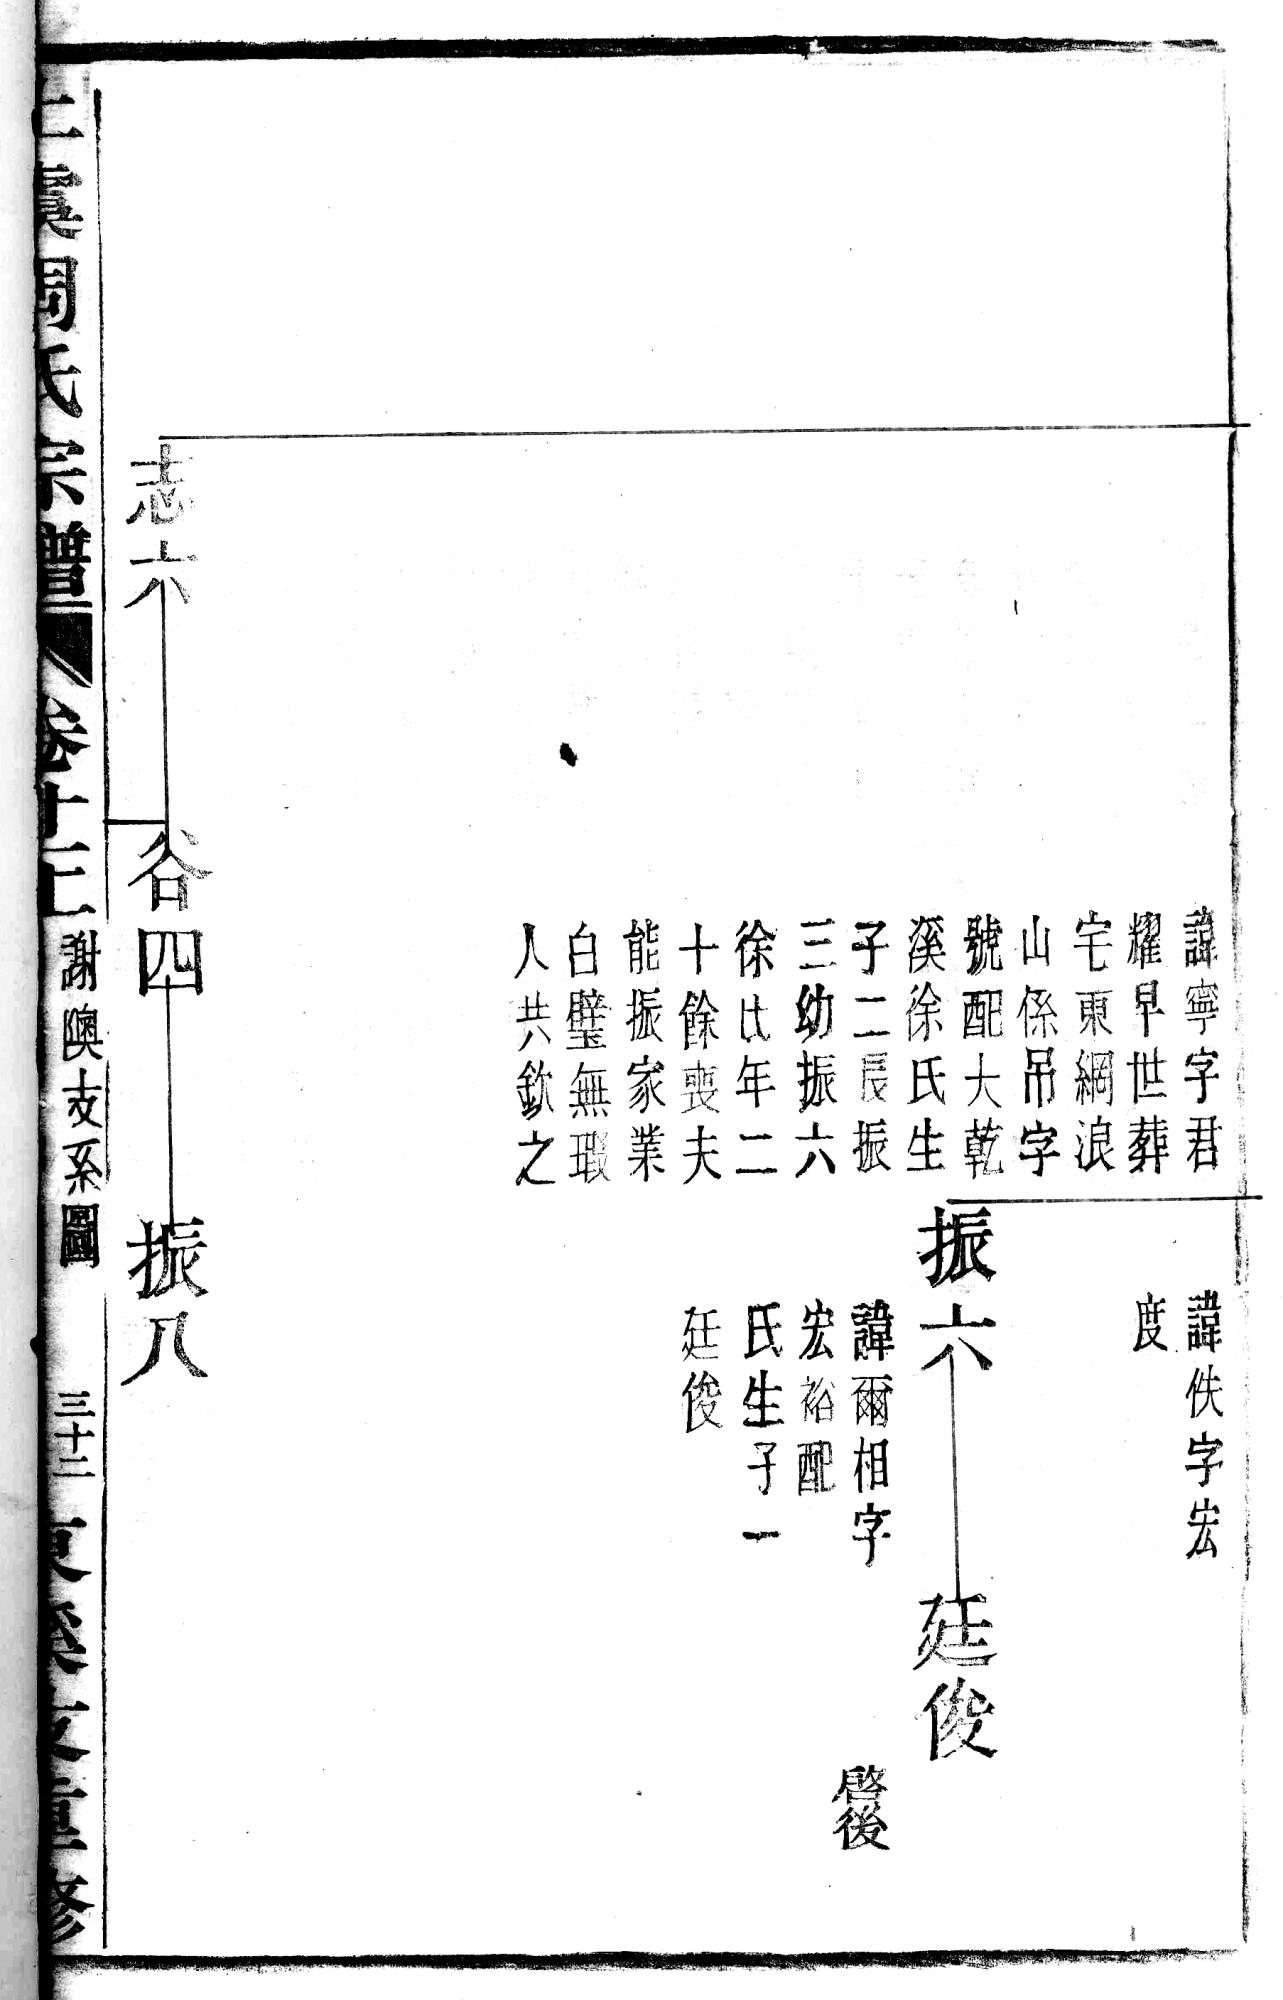 諱寧字君
耀早世葬
宅東綱浪
山係吊字
號配大乾
溪徐氏生
子二長振
三幼振六
徐氏年二
十餘喪夫
能振家業
白璧無瑕
人共欽之
諱佚字宏
度
振六
廷俊
諱爾相字
宏裕配
氏生子一
廷俊
啓後
志六
谷四
振八
上虞周氏宗譜
卷十三
謝隩支系圖
三十二
重修